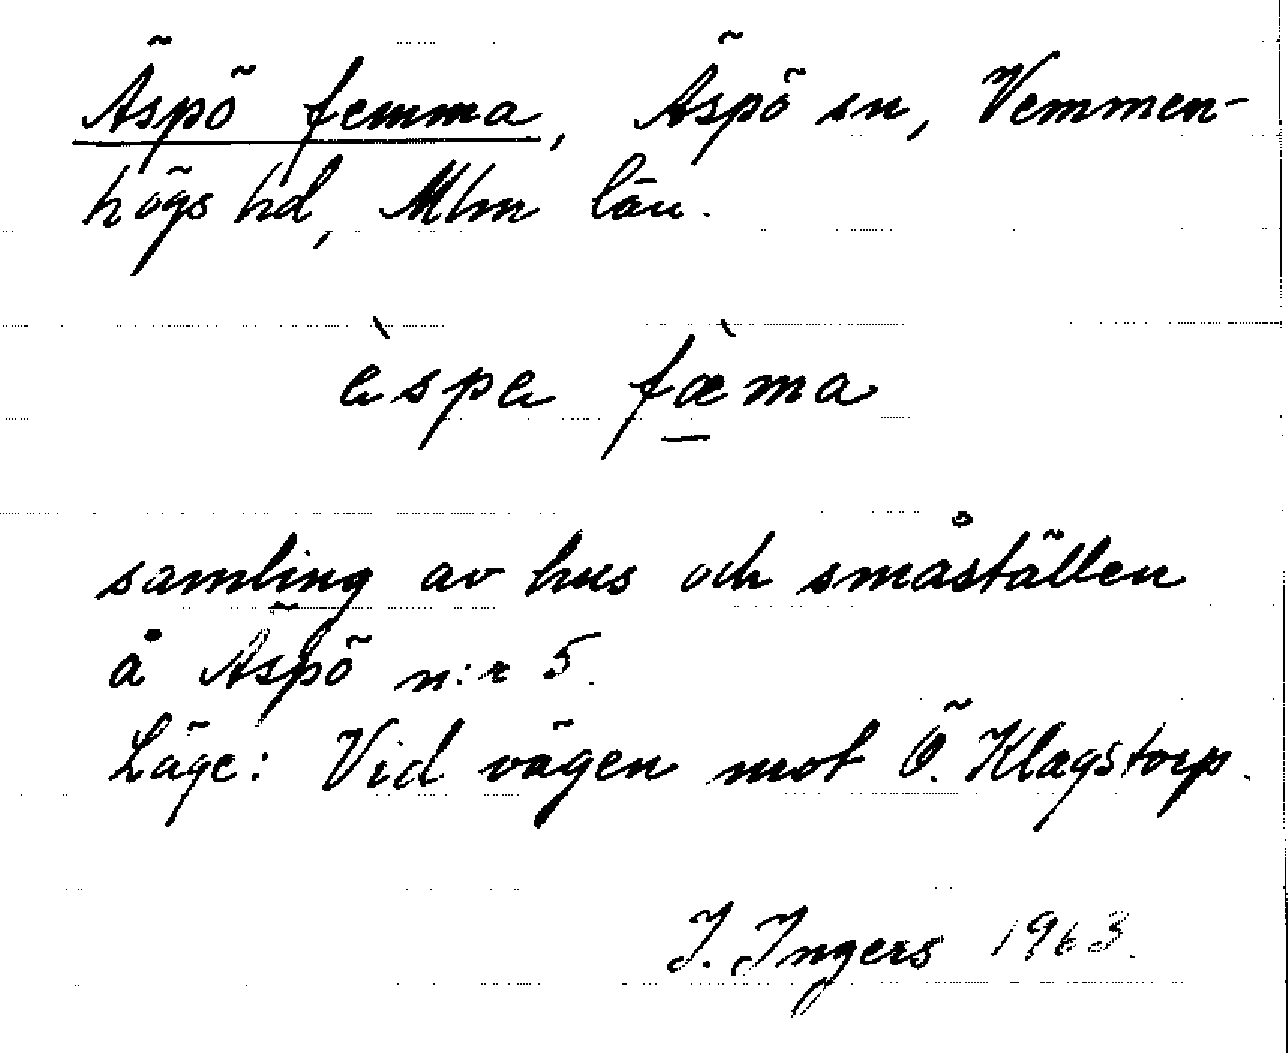 Äspö femma, Äspö sn, Vemmen-
högs hd, Mlm län.
èspe fæ̀ma
samling av hus och småställen
å Äspö n:r 5.
Läge: Vid vägen mot Ö. Klagstorp.
I. Ingers 1963.